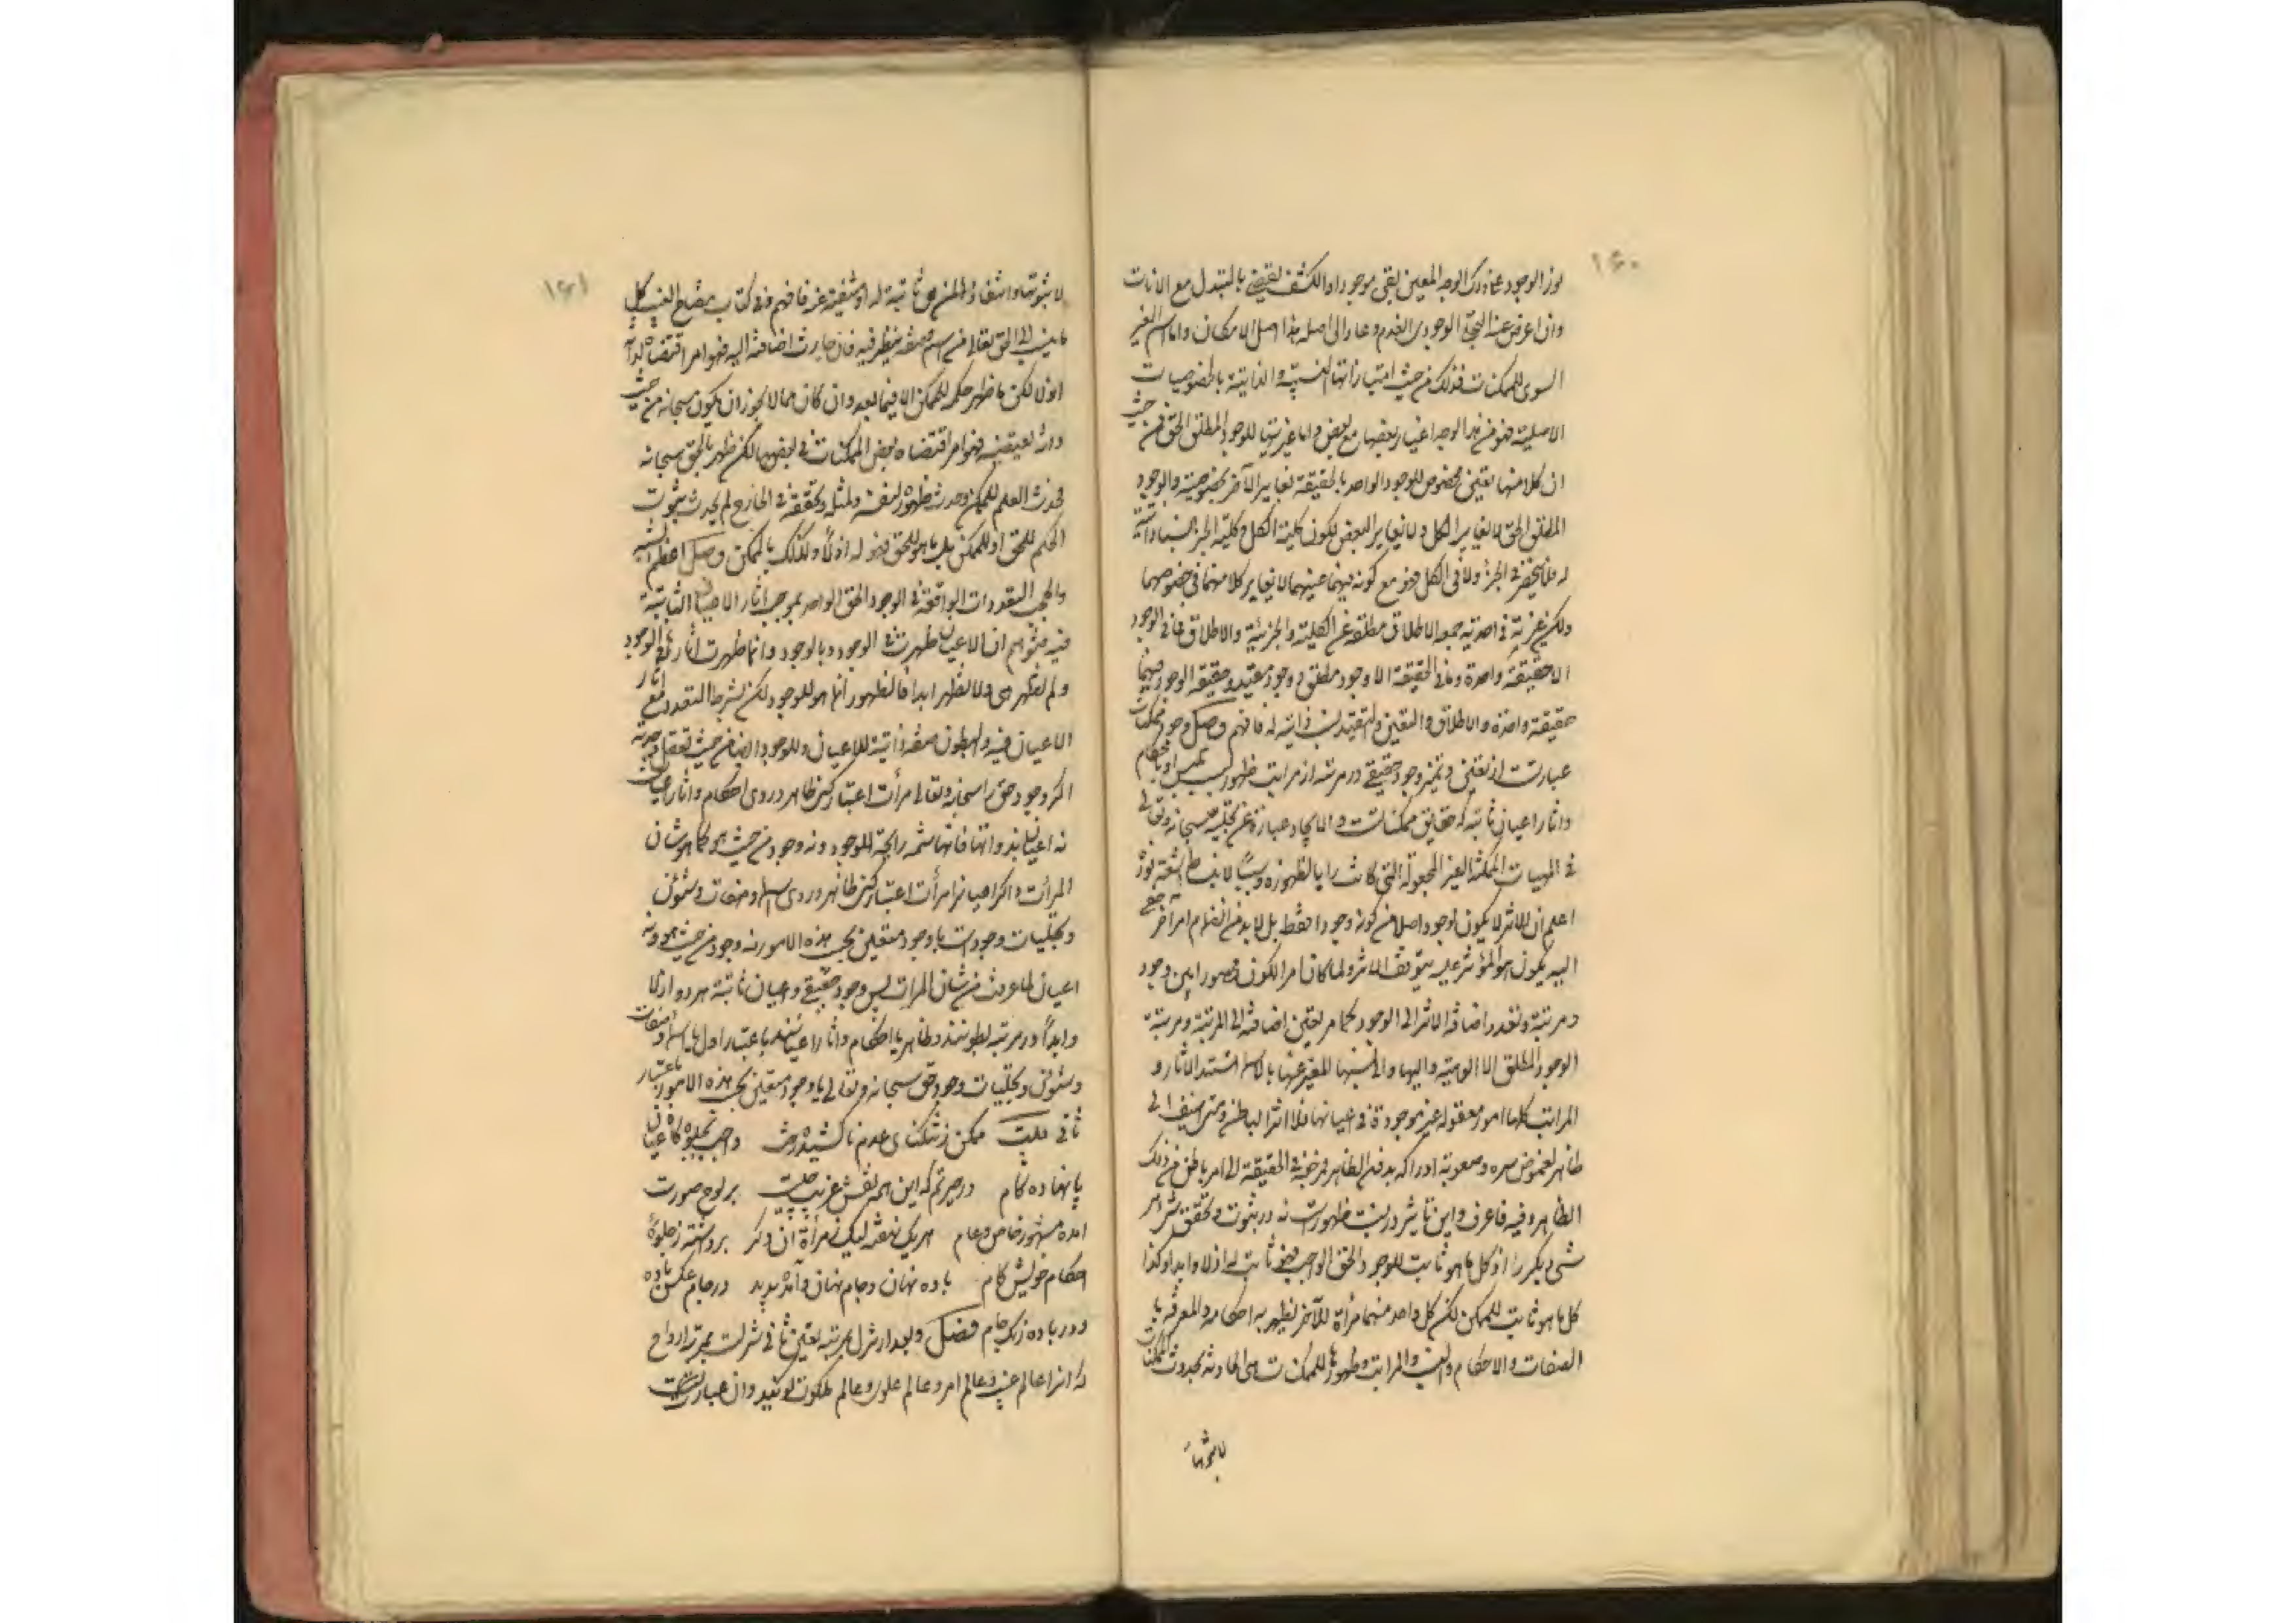 ١٦٠
نور الوجود عنه ذلك الوجه المعين بقى موجودا والكشف يقضى بالتبدل مع الانات
وان اعرض عنه التجلى الوجودى انعدم وعاد الى اصله هذا اصل الامكان واما اسم الغير
السوى للممكنات فذلك من حيث امتيازاتها النسبية والذاتية بالخصوصيات
الاصلية فهو من هذا الوجه اغيار بعضها مع بعض واما غيريتها للوجود المطلق الحق فمن حيث
ان كلا منها تعين مخصوص للوجود الواحد بالحقيقة يغاير الآخر بخصوصيته والوجود
المطلق الحق لا يغاير الكل ولا يغاير البعض لكون كلية الكل وكلية الجزء نسبا ذاتية
له فلا ينحصر فى الجزء ولا فى الكل فهو مع كونه فيهما عينهما لا يغاير كلا منهما فى خصوصهما
ولكن غيريته فى احدية جمعه الاطلاقى مطلقة عن الكلية والجزئية والاطلاق فما فى الوجود
الا حقيقة واحدة وما فى الحقيقة الا وجود مطلق ووجود مقيد وحقيقة الوجود فيهما
حقيقة واحدة والاطلاق والتعين والتقيد نسب ذاتية له فافهم وصل وجود ممكنات
عبارتست از تعين وتميز وجود حقيقى در مرتبه از مراتب ظهور بسبب تلبس او باحكام
واثار اعيان ثابته كه حقايق ممكناتست والايجاد عبارة عن تجليه سبحانه وتعالى
فى المهيات الممكنة الغير المجعولة التى كانت مرايا لظهوره وسببا لانبساط اشعة نوره
اعلم ان الاثر لا يكون لوجود اصلا من كونه وجودا فقط بل لابد من انضمام امر آخر خفى
اليه يكون هو المؤثر عليه يتوقف الاثر ولما كان امر الكون محصورا بين وجود
ومرتبة وتعذر اضافة الاثر الى الوجود كما مر تعين اضافته الى المرتبة ومرتبة
الوجود المطلق الالوهية واليها والى نسبها المعبر عنها بالاسماء تستند الآثار و
المراتب كلها امور معقولة غير موجودة فى اعيانها فلا اثر الا لباطن ومتى اضيف الى
ظاهر لغموض سره وصعوبة ادراكه بدون الظاهر فمرجعه فى الحقيقة الى امر باطن من ذلك
الظاهر وفيه فاعرف واين تاثير در نسبت ظهورست نه در ثبوت وتحقق شىء مر
شىء ديكر را اذ كل ما هو ثابت للوجود الحق الواجب فهو ثابت له ازلا وابدا وكذا
كل ما هو ثابت للممكن لكن كل واحد منهما مرأة للآخر لظهور به احكامه والمعرفة بالـ
الصفات والاحكام والنسب والمراتب وظهورها للممكنات هى الحادثة بحدوث الممكنات
لا ثبوتها
١٦١
لا ثبوتها وانتفاؤها لمن هى ثابتة له او منتفية عنه فافهم وفى كتاب مفتاح الغيب كل
ما ينسب الى الحق تعالى من اسم وصفة ينظر فيه فان جازت اضافته اليه فهو امر اقتضاه لذاته
ازلا لكن ما ظهر حكمه للممكن الا فيما بعد وان كان مما لا يجوز ان يكون سبحانه من حيث
ذاته يقتضيه فهو امر اقتضاه بعض الممكنات فى بعضها لكن ظهر بالحق سبحانه
فحدث العلم للممكن وحدث ظهوره لنفسه ولمثله وتحققه فى الخارج لم يحدث ثبوت
الحكم للحق او للممكن بل ما هو للحق فهو له ازلا وكذلك بالممكن وصل اعظم الشبه
والحجب التعددات الواقعة فى الوجود الحق الواحد بموجب اثار الاعيان الثابتة
فيه فتوهم ان الاعيان ظهرت فى الوجود وبالوجود وانما ظهرت اثارها فى الوجود
ولم تظهر هى ولا تظهر ابدا فالظهور انما هو للوجود لكن بشرط التعدد مع اثار
الاعيان فيه والبطون صفة ذاتية للاعيان وللوجود ايضا من حيث تعقل وحدته
اكر وجود حق را سبحانه وتعالى مرأت اعتبار كنى ظاهر در وى احكام واثار اعيانست
نه اعيان بذواتها فانها ما شمت رائحة الوجود ونه وجود من حيث هو كما هو شان
المرأت واكر اعيانرا مرأت اعتبار كنى ظاهر در وى اسماء وصفات وشئون
وتجليات وجودست يا وجود متعين بحسب هذه الامور نه وجود من حيث هو ونه
اعيان لما عرفت من شان المرات پس وجود حقيقى واعيان ثابته هر دو ازلا
وابدا در مرتبه بطونند وظاهر يا احكام واثار اعيانند باعتبار اول يا اسما وصفات
وشئون وتجليات وجود حق سبحانه وتعالى يا وجود متعين بحسب هذه الامور باعتبار
ثانى بيت ممكن ز تنكناى عدم ناكشيده رخت واجب بجلوه كاه عيان
نانهاده كام در حيرتم كه اين همه نقش غريب چيست بر لوح صورت
امده مشهور خاص وعام هر يك نهفته ليك ز مرأة آن دكر برداشته ز جلوۀ
احكام خويش كام باده نهان وجام نهان وآمده پديد در جام عكس باده
ودر باده رنك جام فصل وبعد از تنزل بمرتبه تعين ثانى تنزلست بمرتبه ارواح
كه انرا عالم غيب وعالم امر وعالم علوى وعالم ملكوت كويند وان عبارتست